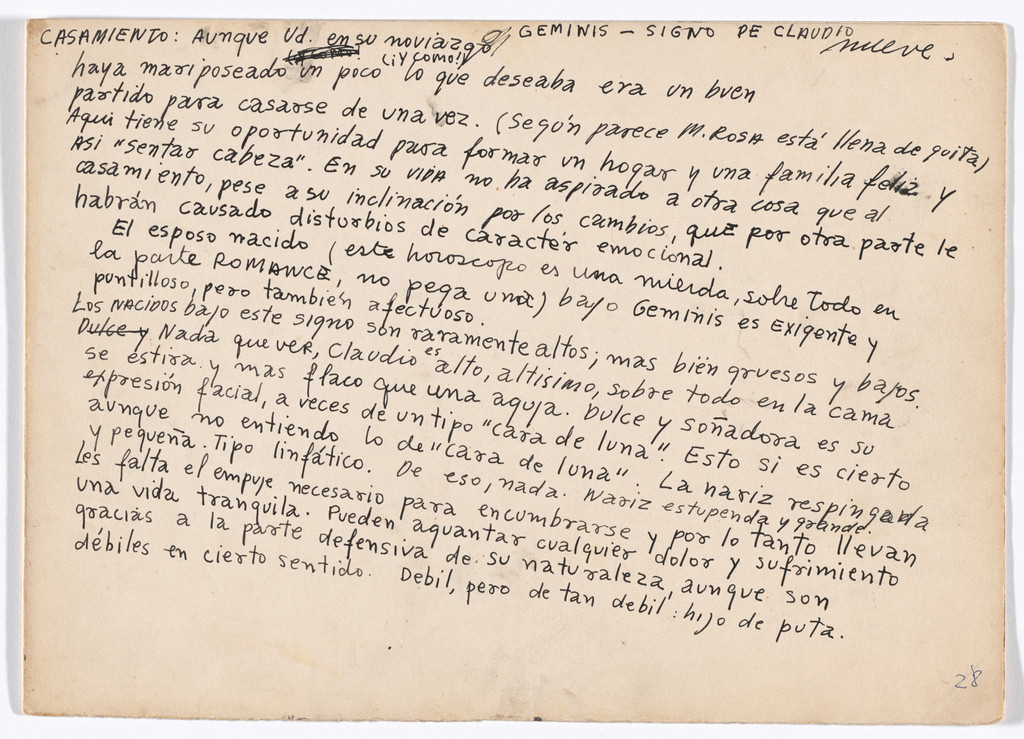 GEMINIS – SIGNO DE CLAUDIO
nueve.
CASAMIENTO: Aunque Ud. en su noviazgo
(¡Y COMO!)
haya mariposeado un poco lo que deseaba era un buen
partido para casarse de una vez. (Según parece M. ROSA está llena de guita)
Aqui tiene su oportunidad para formar un hogar y una familia feliz y
ASI "sentar cabeza". En su VIDA no ha aspirado a otra cosa que al
casamiento, pese a su inclinación por los cambios, que por otra parte le
habrán causado disturbios de caractér emocional.
El esposo nacido (este horoscopo es una mierda, sobre todo en
la parte ROMANCE, no pega una) bajo Geminis es EXigente y
puntilloso, pero también afectuoso.
Los NACIDOS bajo este signo son raramente altos; mas bién gruesos y bajos.
Dulce y Nada que VER, Claudio es alto, altisimo, sobre todo en la cama
se estira y mas flaco que una aguja. Dulce y soñadora es su
expresión facial, a veces de un tipo "cara de luna". Esto si es cierto
aunque no entiendo lo de "cara de luna". La nariz respingada
y pequeña. Tipo linfático. De eso, nada. Nariz estupenda y grande.
Les falta el empuje necesario para encumbrarse y por lo tanto llevan
una vida tranquila. Pueden aguantar cualquier dolor y sufrimiento
gracias a la parte defensiva de su naturaleza, aunque son
débiles en cierto sentido. Debil, pero de tan debil: hijo de puta.
28